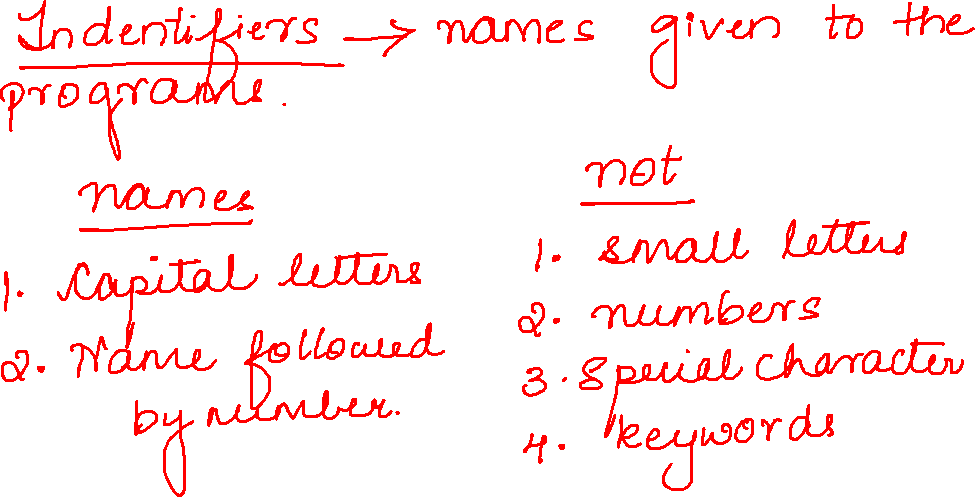 Indentifiers → names given to the
programs.
names
1. Capital letters
2. Name followed
by number.
not
1. small letters
2. numbers
3. Special character
4. keywords